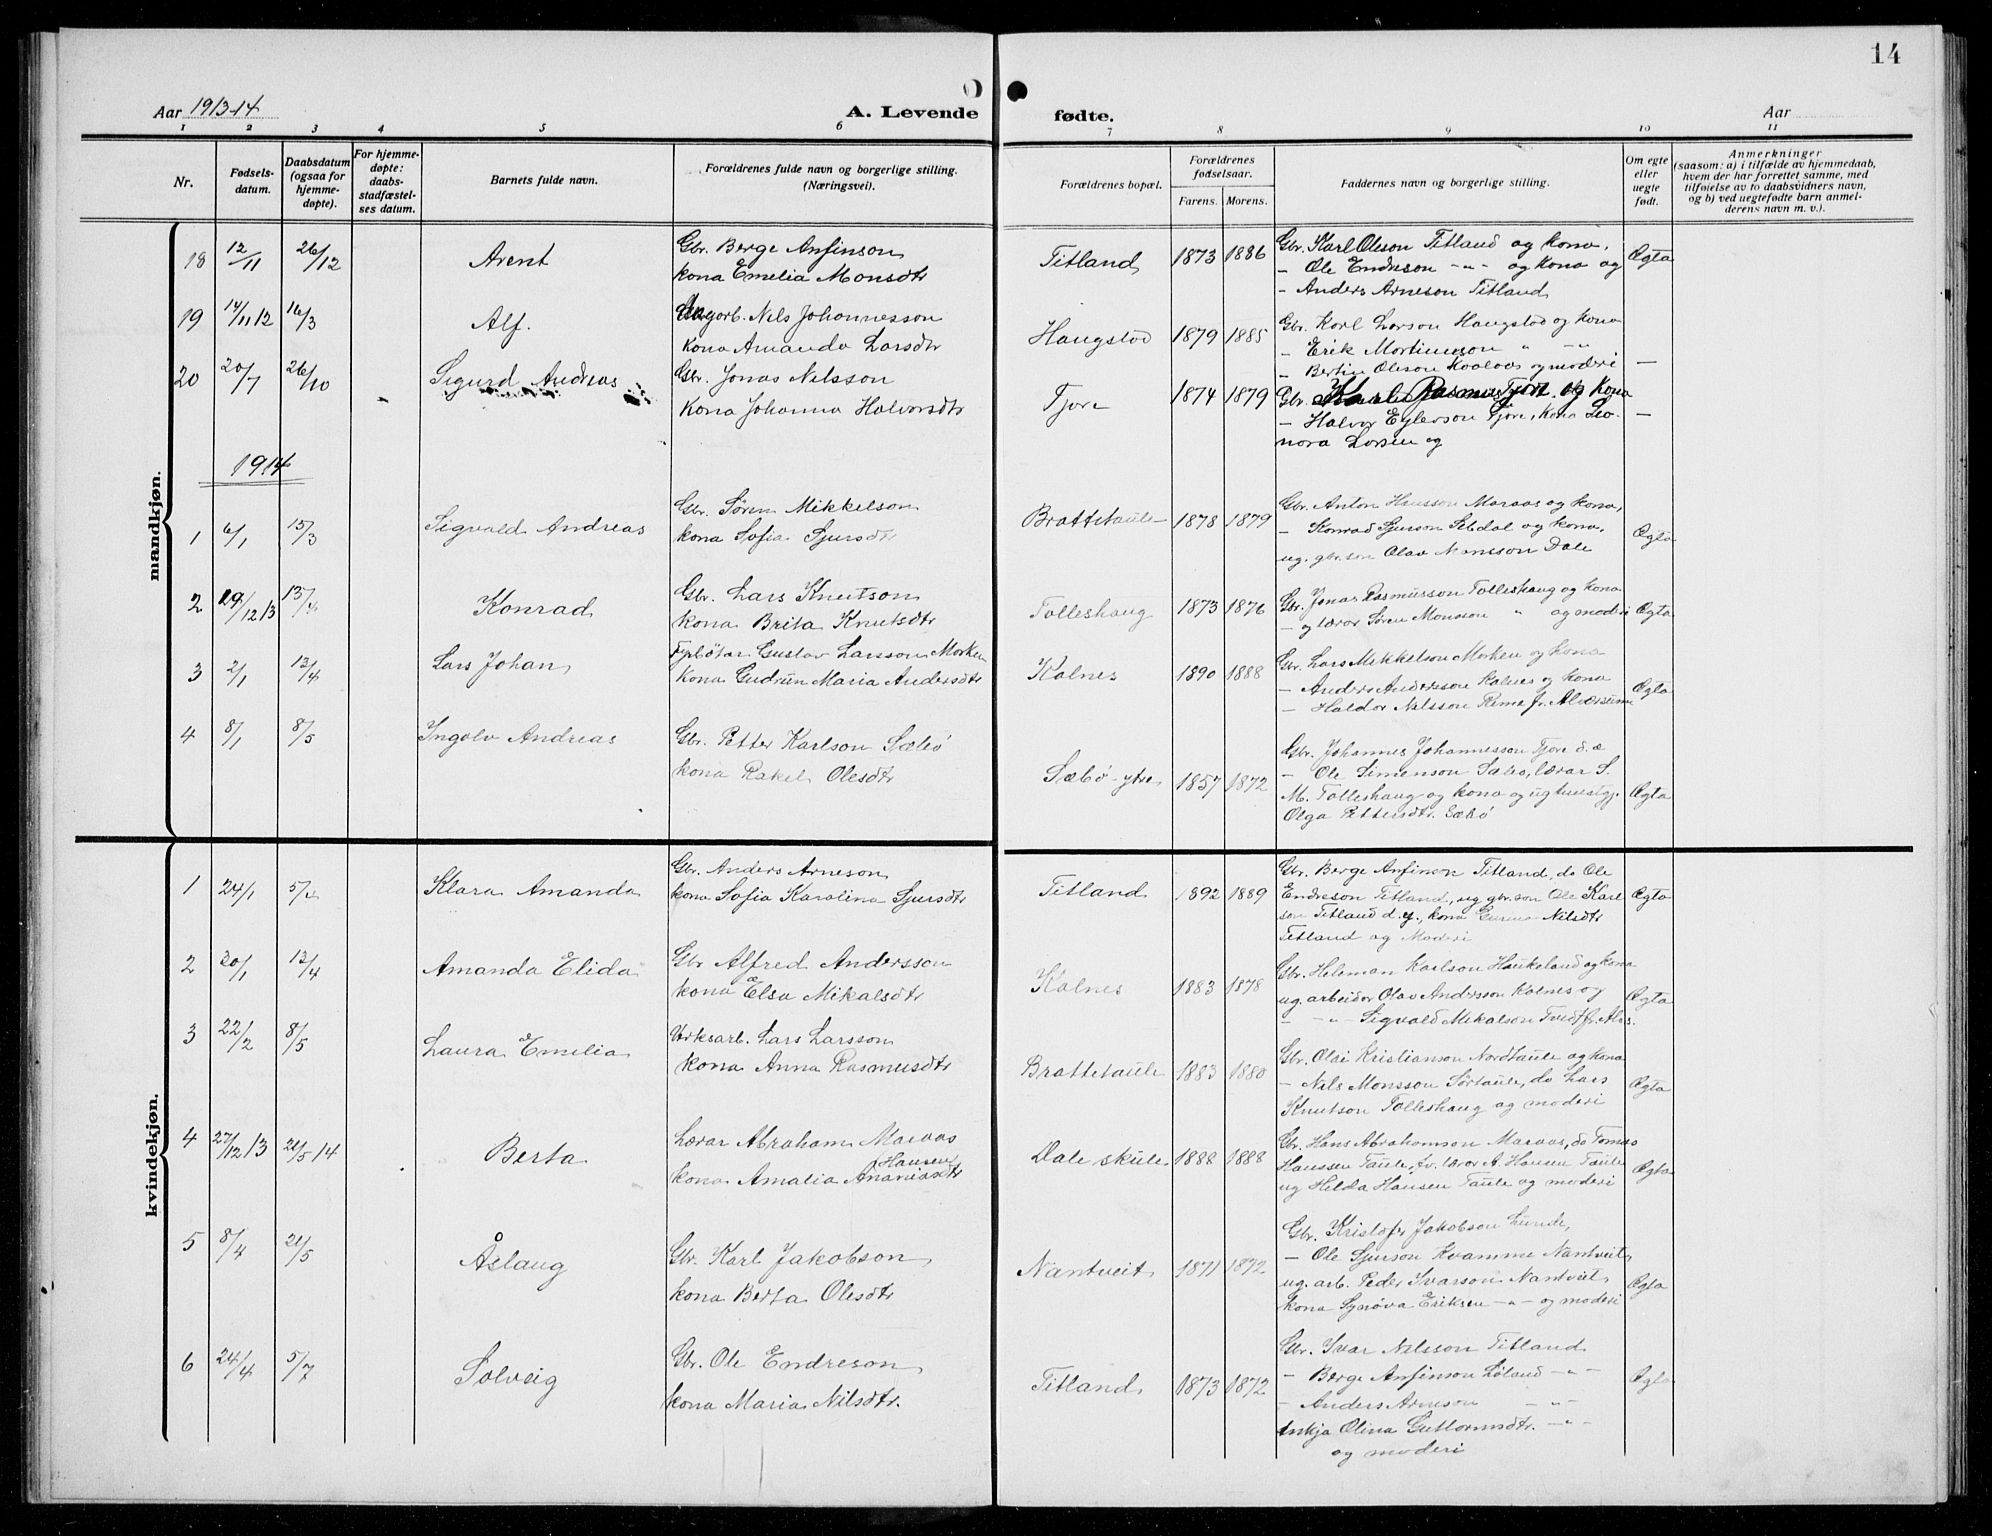 14
Aar 1913-14
A. Levende fødte.
Aar
1 2 3 4 5 6 7 8 9 10 11
Nr.
Fødsels-
datum.
Daabsdatum
(ogsaa for
hjemme-
døpte).
For hjemme-
døpte:
daabs-
stadfæstel-
ses datum.
Barnets fulde navn.
Forældrenes fulde navn og borgerlige stilling.
(Næringsvei).
Forældrenes bopæl.
Forældrenes
fødselsaar.
Farens. Morens.
Faddernes navn og borgerlige stilling.
Om egte
eller
uegte
født.
Anmerkninger
(saasom: a) i tilfælde av hjemmedaab,
hvem der har forrettet samme, med
tilføielse av to daabsvidners navn,
og b) ved uegtefødte barn anmel-
derens navn m. v.).
mandkjøn.
18 12/11 26/12 Arent
Gbr. Berge Anfinson
kona Emelia Monsdtr
Titland 1873 1886
Gbr. Karl Oleson Titland og kona.
- Ole Endreson -"- og kona og
- Anders Arneson Titland
Ægta
19 14/11 12 16/3 Alf.
Nils Johannesson
kona Amanda Larsdtr
Haugstad 1879 1885
Gbr. Karl Larson Haugstad og kona
- Erik Mortinsson " -"-
- Bertin Oleson og moderi
—
20 20/7 26/10 Sigurd Andreas
Gbr. Jonas Nilsson
kona Johanna Halvorsdtr
Tjore 1874 1879
Gbr. Karl Rasmus Tjore og kona
- Halvor Eylerson Tjore, kona Leo-
nora Larsen og
—
1914
1 6/1 15/3 Sigvald Andreas
Gbr. Søren Mikkelson
kona Sofia Sjursdtr
Brattetaule 1878 1879
Gbr. Anton Hansson Maraas og kona,
- Konrad Sjurson og kona.
ug. gbr.son Olav Monsson Dale
Ægta
2 29/12 13 13/4 Konrad
Gbr. Lars Knutson
kona Brita Knutsdtr
Tolleshaug 1873 1876
Gbr. Jonas Rasmusson Tolleshaug og kona
- og lærar Søren Monsson " og moderi
Ægta
3 2/1 13/4 Lars Johan
Fyrbøtar Gustav Larsson Morken
kona Gudrun Maria Andersdtr
Kalnes 1890 1888
Gbr. Lars Mikkelson Morken og kona
- Anders Anderson Kalnes og kona
- Haldor Nilsson Rema fr. Alversund
Ægta
4 8/1 8/5 Ingolv Andreas
Gbr. Petter Karlson Sæbø
kona Rakel Olesdtr
Sæbø ytre 1857 1872
Gbr. Johannes Johannesson Tjore d. æ
- Ole Simenson Sæbø, lærar S.
M. Tolleshaug og kona og ug
Olga Pettersdtr. Sæbø
Ægta
kvindekjøn.
1 24/1 5/4 Klara Amanda
Gbr. Anders Arneson
kona Sofia Karolina Sjursdtr
Titland 1892 1889
Gbr. Berge Anfinson Titland, do Ole
Endreson Titland, ug gbr.son Ole Karl
son Titland d.y., kona Nilsdtr
Titland og Moderi
Ægta
2 20/1 13/4 Amanda Elida
Gbr Alfred Andersson
kona Elsa Mikalsdtr
Kalnes 1883 1878
Gbr. Heleman Karlson Haukeland og kona
ug. arbeider Olav Andersson Kalnes og
- -"- Sigvald Mikalson Tvedt fr. Alvs.
Ægta
3 22/2 8/5 Laura Emelia
Verksarb. Lars Larsson
kona Anna Rasmusdtr
Brattetaule 1883 1880
Gbr. Olai Kristianson Nordtaule og kona
- Nils Monsson Sørtaule, do Lars
Knutson Tolleshaug og moderi
Ægta
4 27/12 13 21/5 14 Berta
Lærar Abraham Maraas
Hansen
kona Amalia Ananiasdtr
Dale skule 1888 1888
Gbr. Hans Abrahamson Maraas, do Tomas
Hanssen Taule, fv. lærar A. Hansen Taule
ug Hilda Hansen Taule og moderi
Ægta
5 8/4 21/5 Åslaug
Gbr. Karl Jakobson
kona Berta Olesdtr
Nantveit 1871 1872
Gbr. Kristofer Jakobson Lunde,
- Ole Sjurson Kvamme Nantveit
ug. arb. Peder Ivarson Nantveit
kona Synøva Eriksen -"- og moderi
Ægta
6 24/4 5/7 Solveig
Gbr. Ole Endreson
kona Maria Nilsdtr.
Titland 1873 1872
Gbr. Ivar Nilsson Titland
- Berge Anfinson -"-
- Anders Arneson -"-
enkja Olina Guttormsdtr. -"-
og moderi
Ægta